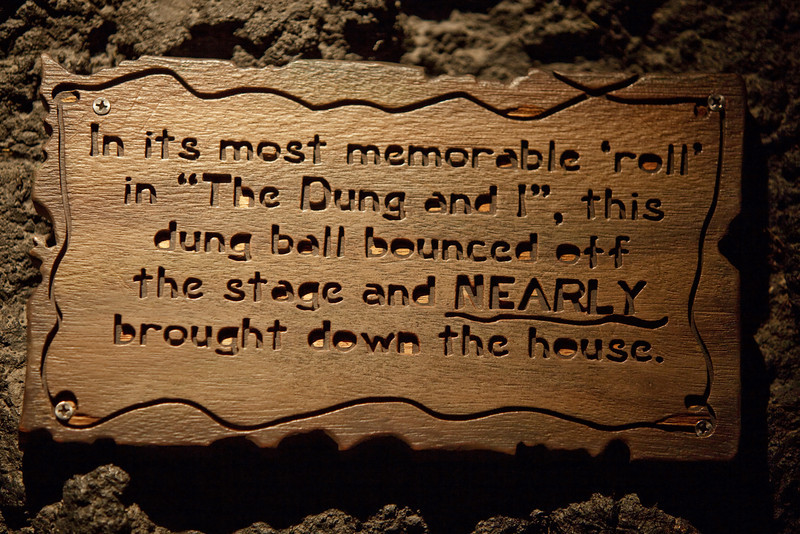 In its most memorable 'roll'
in "The Dung and I", this
dung ball bounced off
the stage and NEARLY
brought down the house.